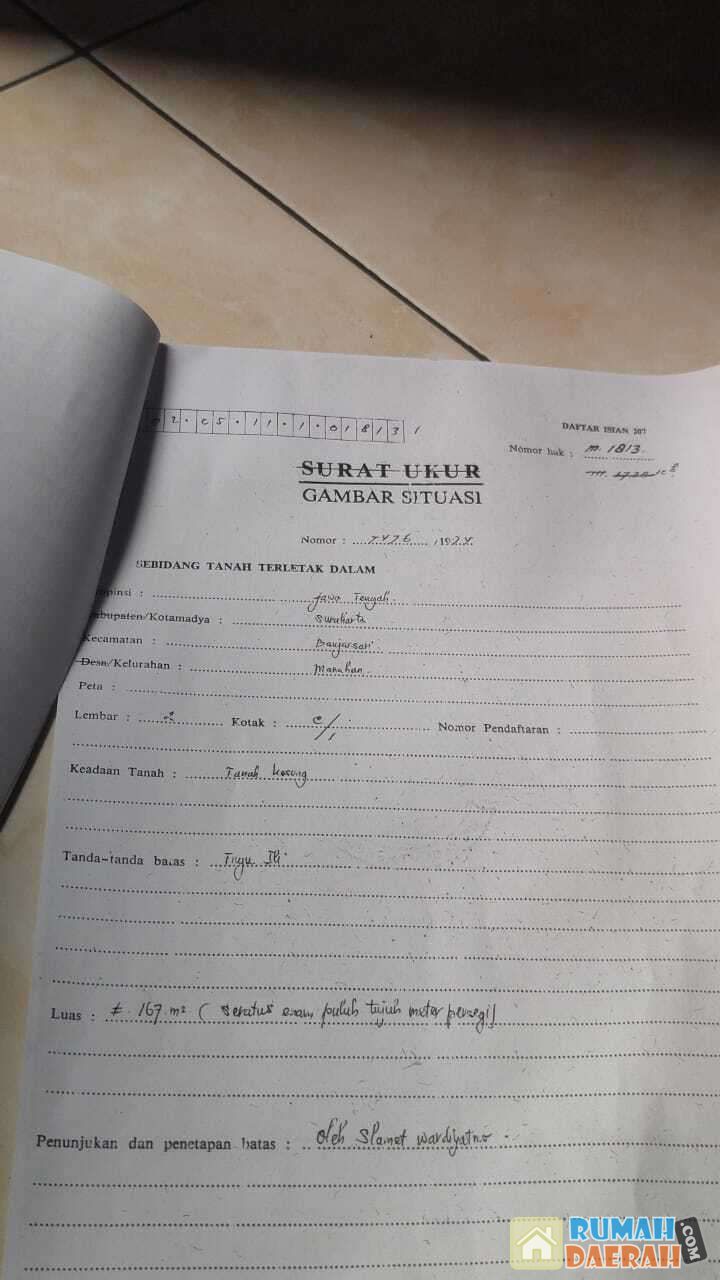 02.05.11.1.01813 1
DAFTAR ISIAN 307
Nomor hak : M. 1813.
SURAT UKUR
GAMBAR SITUASI
Nomor : ........, 19
SEBIDANG TANAH TERLETAK DALAM
opinsi : Jawa Tengah.
abupaten/Kotamadya : Surakarta
Kecamatan : Banjarsari
Desa/Kelurahan : Manahan
Peta :
Lembar : Kotak : Nomor Pendaftaran :
Keadaan Tanah : Tanah kosong
Tanda-tanda batas :
Luas : ± 167 m² ( seratus enam puluh tujuh meter persegi)
Penunjukan dan penetapan batas : Oleh Slamet Wardiyatno.
RUMAH
DAERAH
.COM